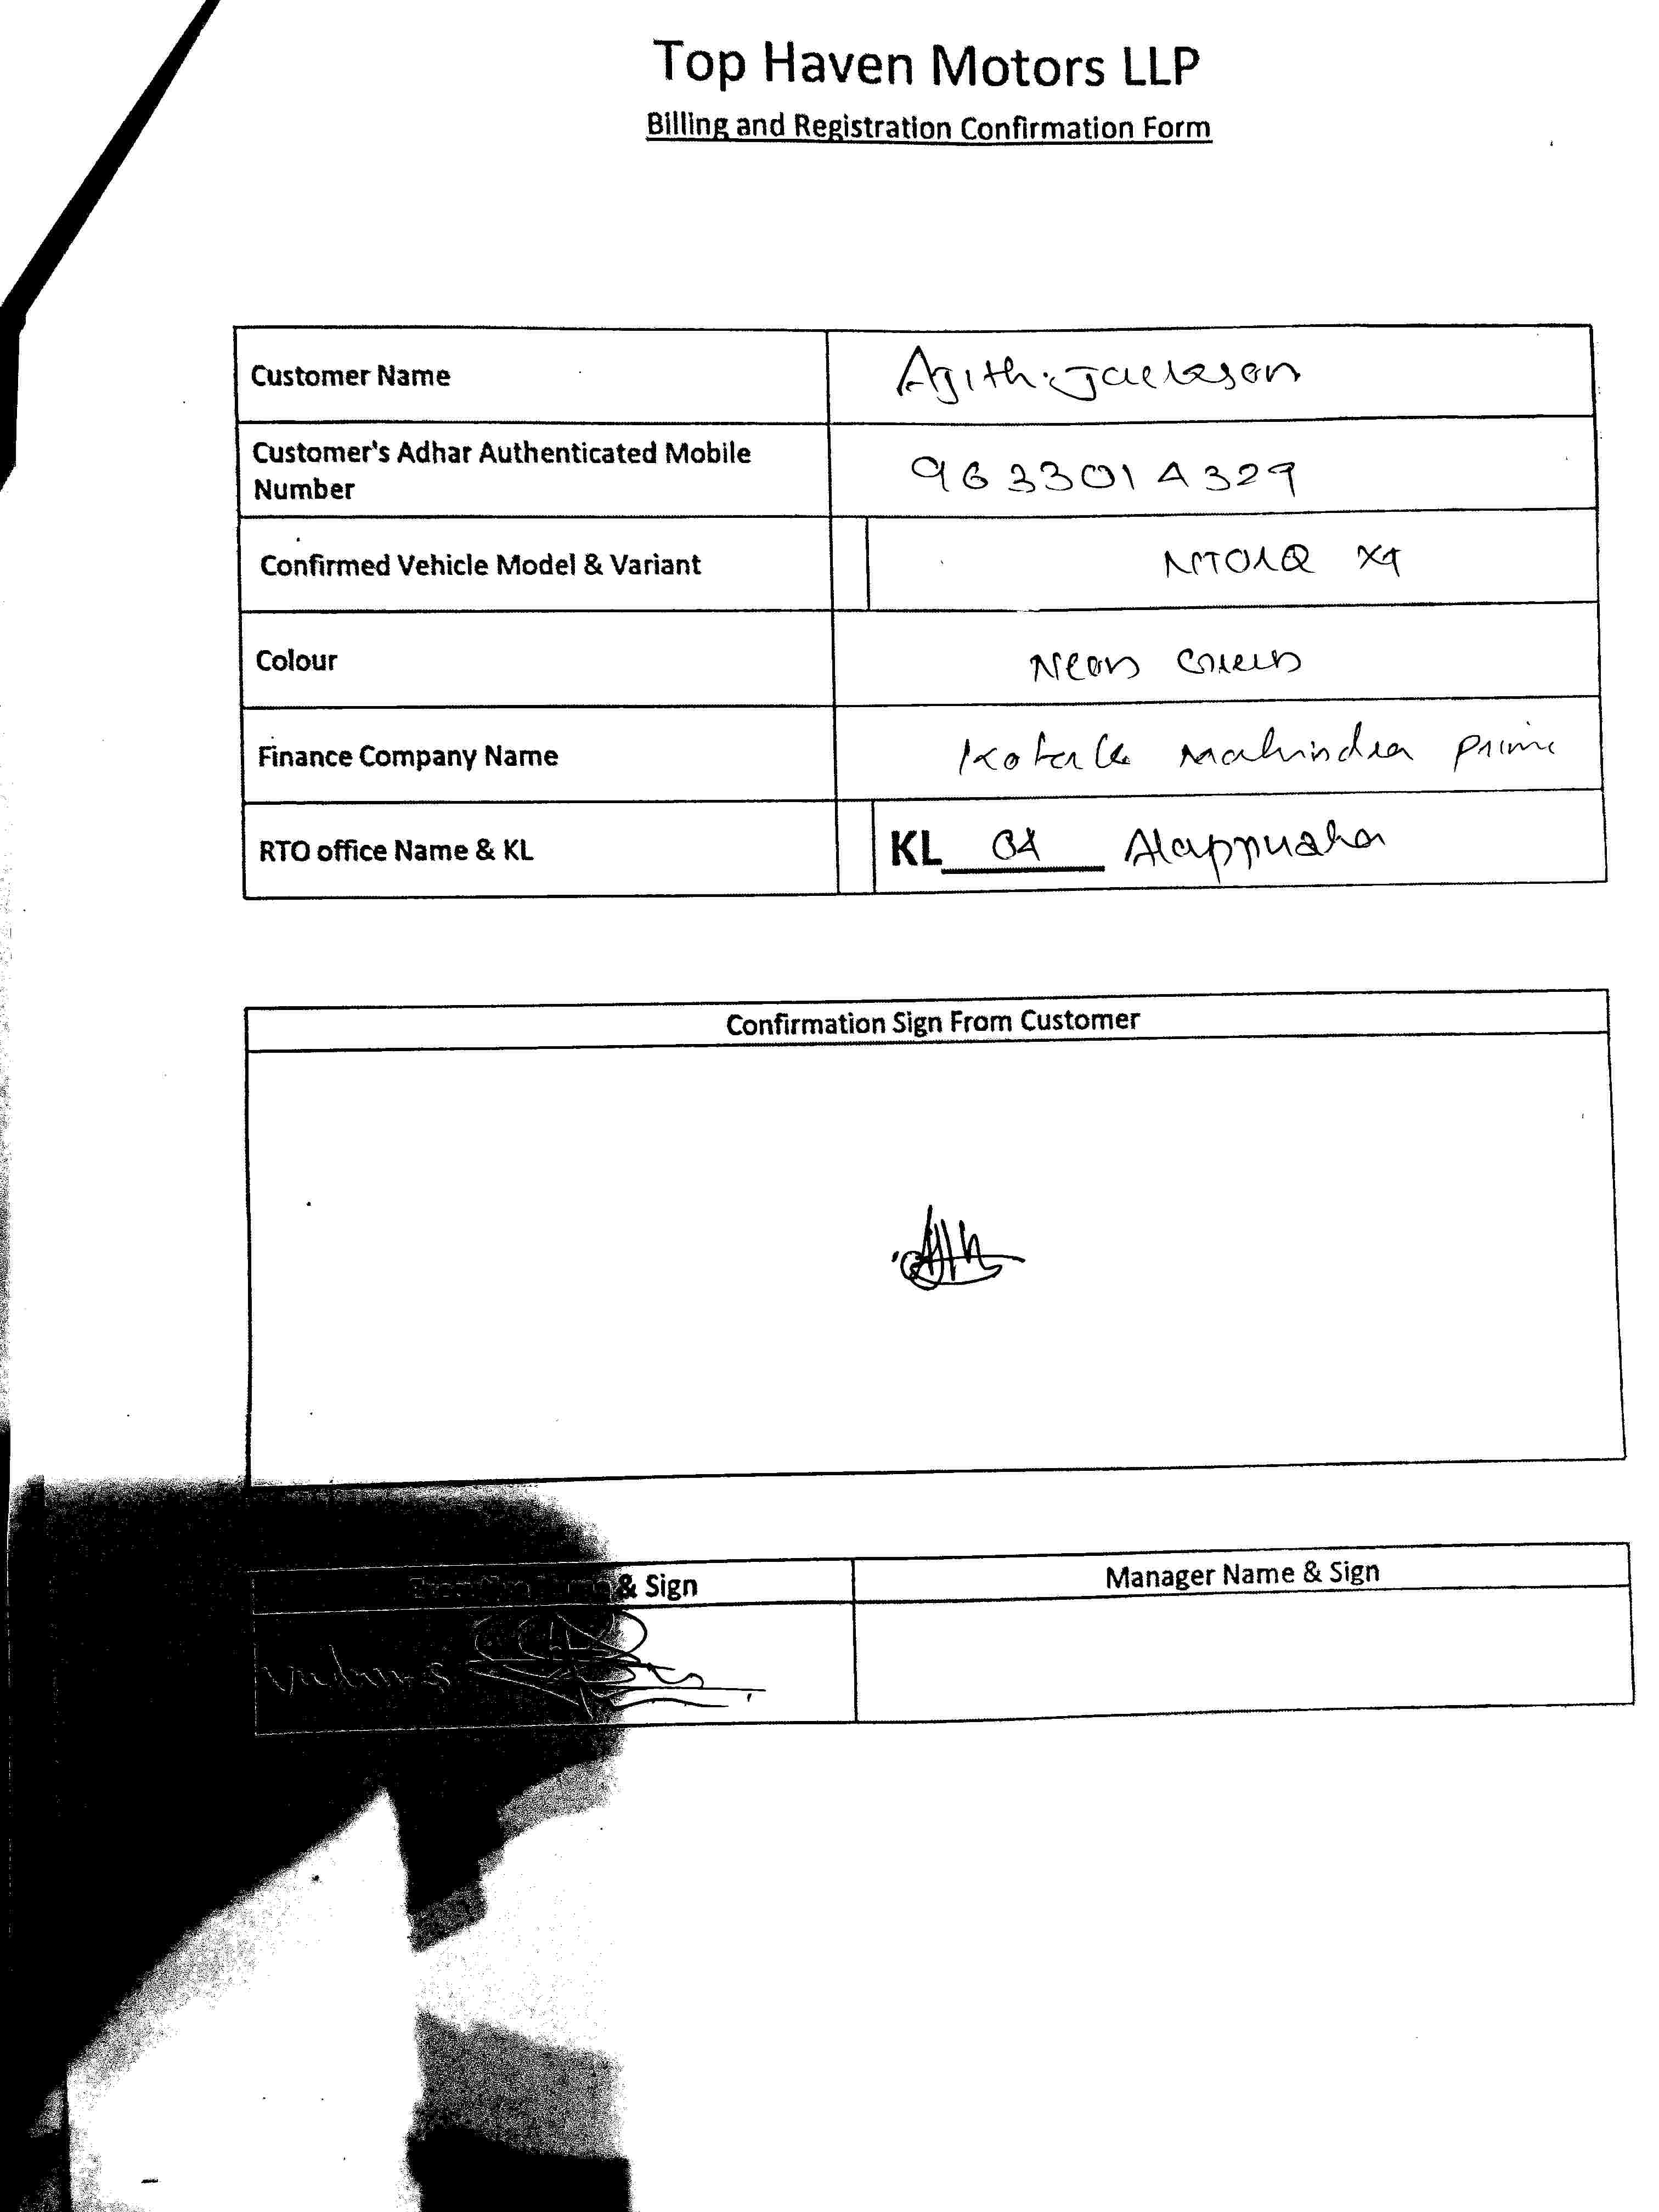 Top Haven Motors LLP
Billing and Registration Confirmation Form
Customer Name Ajith Jackson
Customer's Adhar Authenticated Mobile
Number 9633014329
Confirmed Vehicle Model & Variant NTORQ XT
Colour Neon Green
Finance Company Name Kotak Mahindra Prime
RTO office Name & KL KL 04 Alappuzha
Confirmation Sign From Customer
Executive Name & Sign Manager Name & Sign